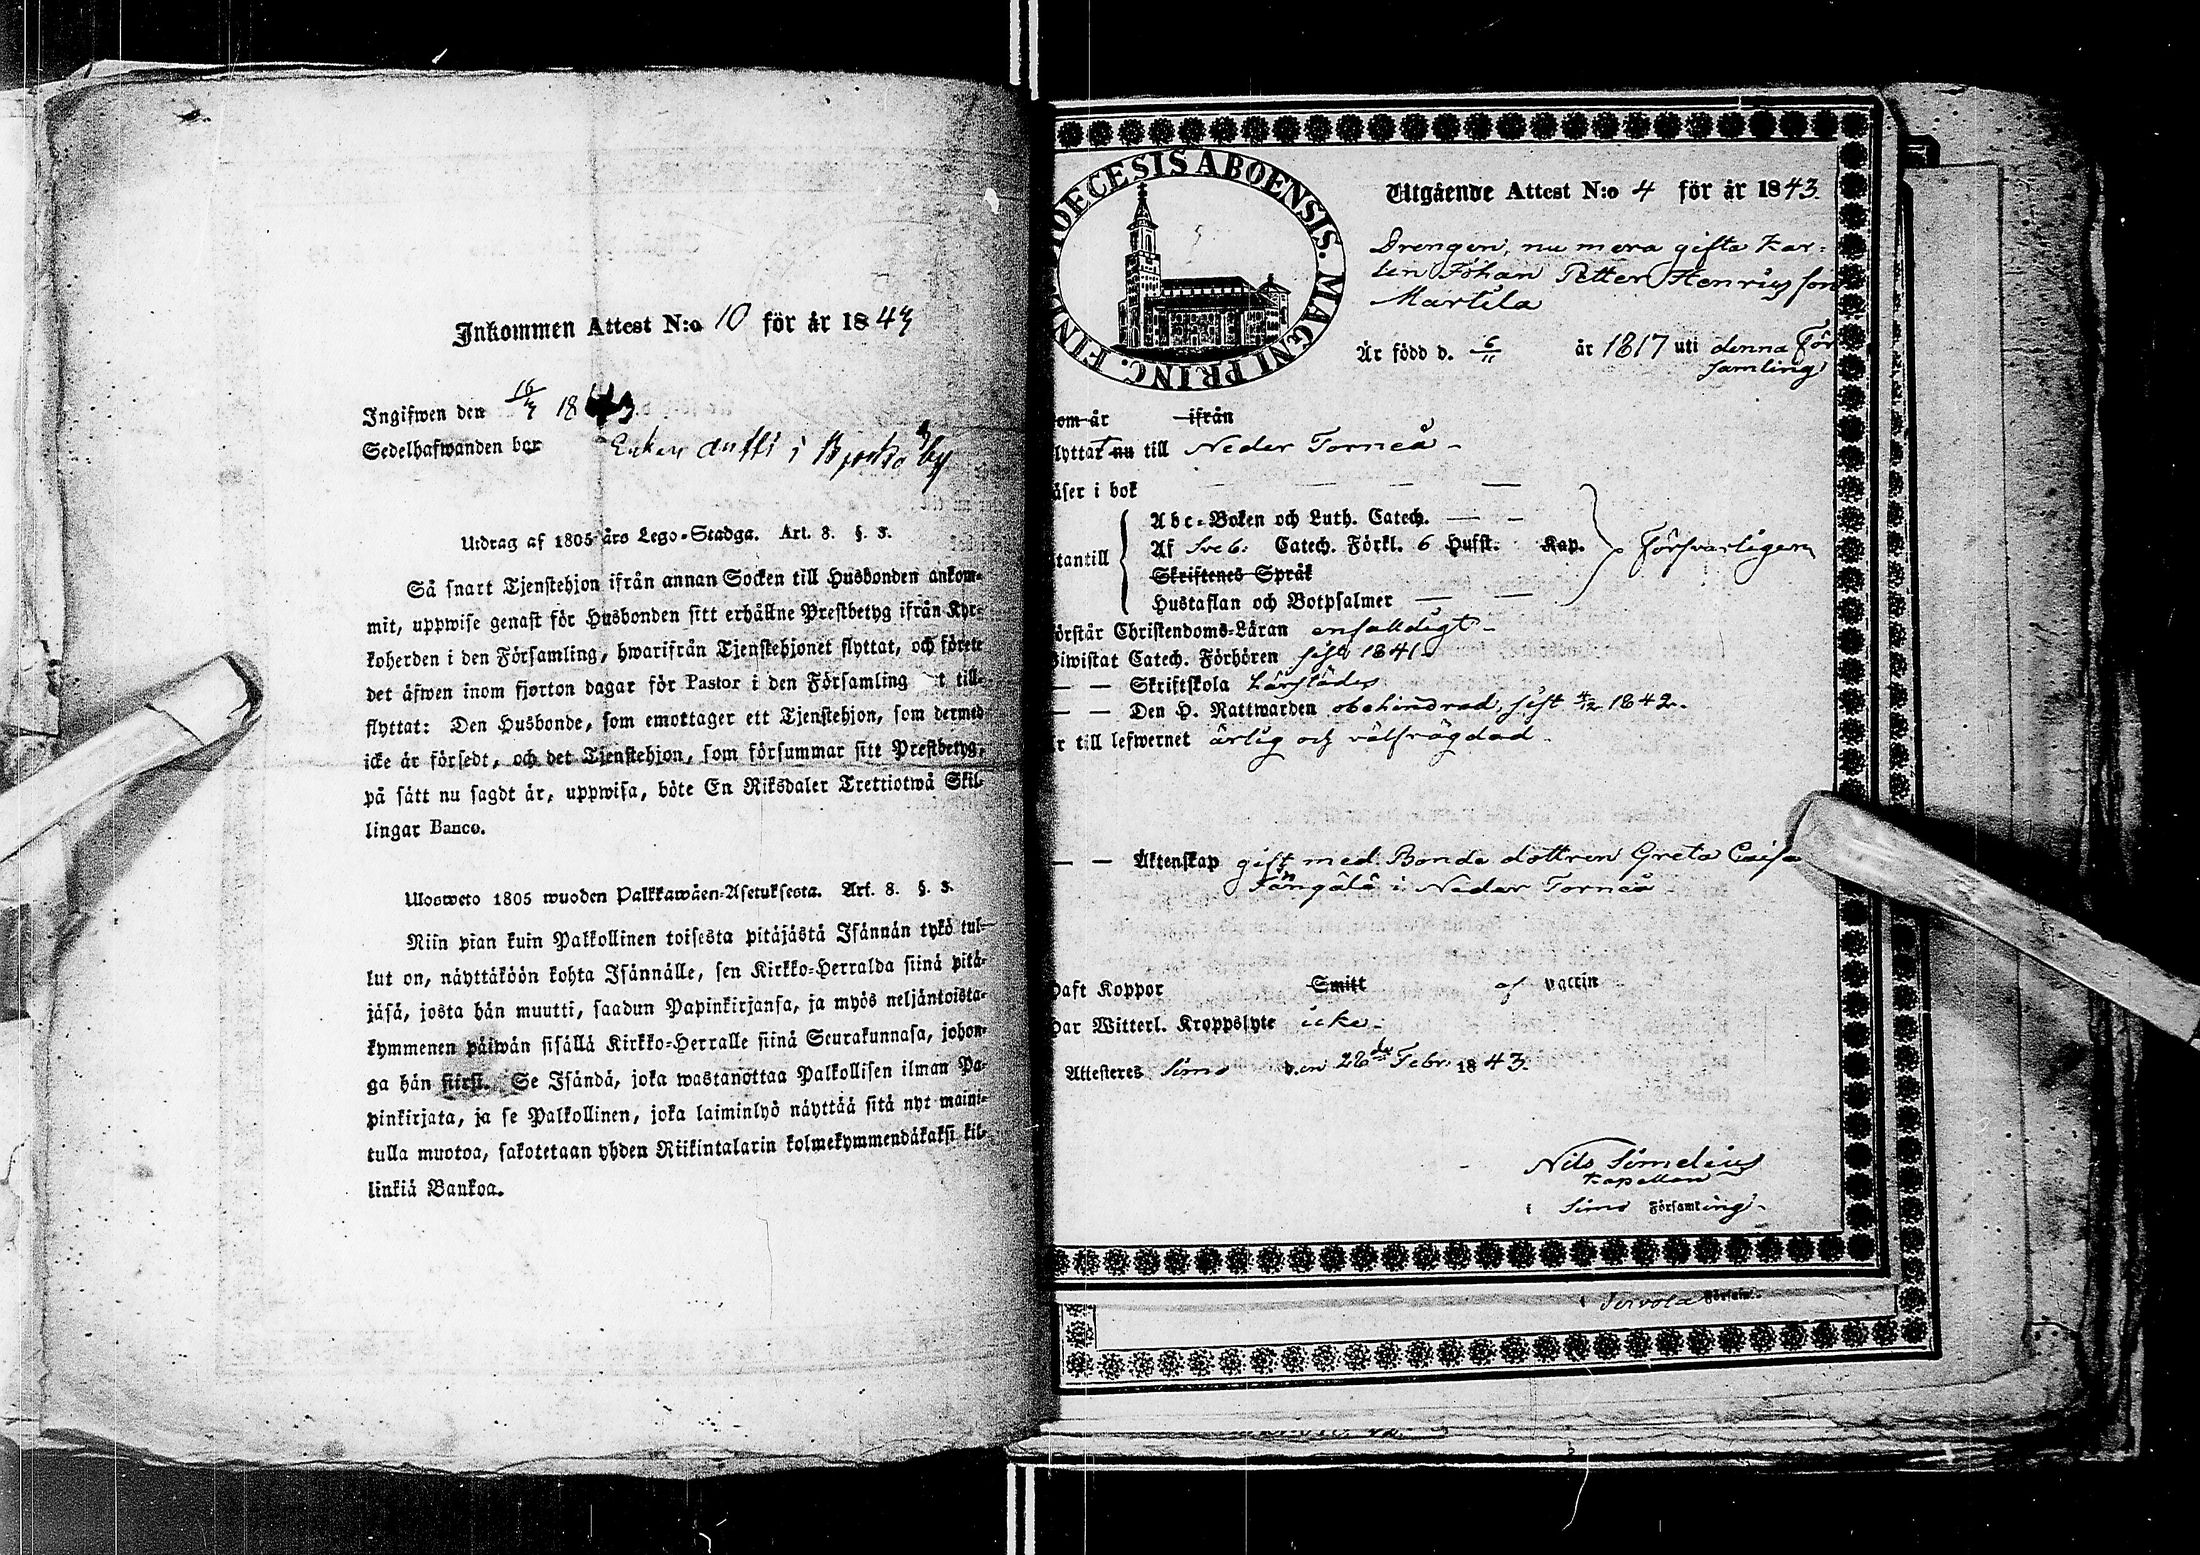 Inkommen Attest N:o 10 för år 1843
Ingifwen den 16/3 1843
Sedelhafwanden bor Enkan i by
Utdrag af 1805 års Lego-Stadga. Art. 8. §. 3.
Så snart Tjenstehjon ifrån annan Socken till Husbonden ankom-
mit, uppwise genast för Husbonden sitt erhållne Prestbetyg ifrån Kyr-
koherden i den Församling, hwarifrån Tjenstehjonet flyttat, och förete
det äfwen inom fjorton dagar för Pastor i den Församling t till-
flyttat: Den Husbonde, som emottager ett Tjenstehjon, som dermed
icke är försedt, och det Tjenstehjon, som försummar sitt Prestbetyg,
på sätt nu sagdt är, uppwisa, böte En Riksdaler Trettiotwå Skil-
lingar Banco.
Ulosweto 1805 wuoden Palkkawäen-Asetuksesta. Art. 8. §. 3.
Niin pian kuin Palkollinen toisesta pitäjästä Isännän tykö tul-
lut on, näyttäköön kohta Isännälle, sen Kirkko-Herralda siinä pitä-
jäsä, josta hän muutti, saadun Papinkirjansa, ja myös neljäntoista-
kymmenen päiwän sisällä Kirkko-Herralle siinä Seurakunnasa, johon-
ga hän siirsi. Se Isändä, joka wastanottaa Palkollisen ilman Pa-
pinkirjata, ja se Palkollinen, joka laiminlyö näyttää sitä nyt maini-
tulla muotoa, sakotetaan yhden Riikintalarin kolmekymmendäkaksi kil-
linkiä Bankoa.
DIOECESIS ABOENSIS. MAGNI PRINC. FINL
Utgående Attest N:o 4 för år 1843.
Drengen, nu mera gifta Kar-
len Johan Petter Henricsson
Martila
Är född d. 6/11 år 1817 uti denna För
samling
om år ifrån
lyttat nu till Neder Torneå
äser i bok
tantill
Abc-Boken och Luth. Catech.
Af Sveb. Catech. Förkl. 6 Hufst. Kap. Försvarligen
Skriftenes Språk
Hustaflan och Botpsalmer
örstår Christendoms-Läran enfalldigt
iwistat Catech. Förhören sist 1841
Skriftskola Lärflädes
Den H. Nattwarden obehindrad, sist 4/12 1842.
r till lefwernet ärlig och välfrägdad
Äktenskap gift med Bonde dottren Greta Caisa
i Neder Torneå
Haft Koppor Smitt af vaccin
Har Witterl. Kroppslyte icke
Attesteres Simo den 28de Febr. 1843.
Nils Simelius
Kapellan
i Simo Församling
i Tervola Församl.